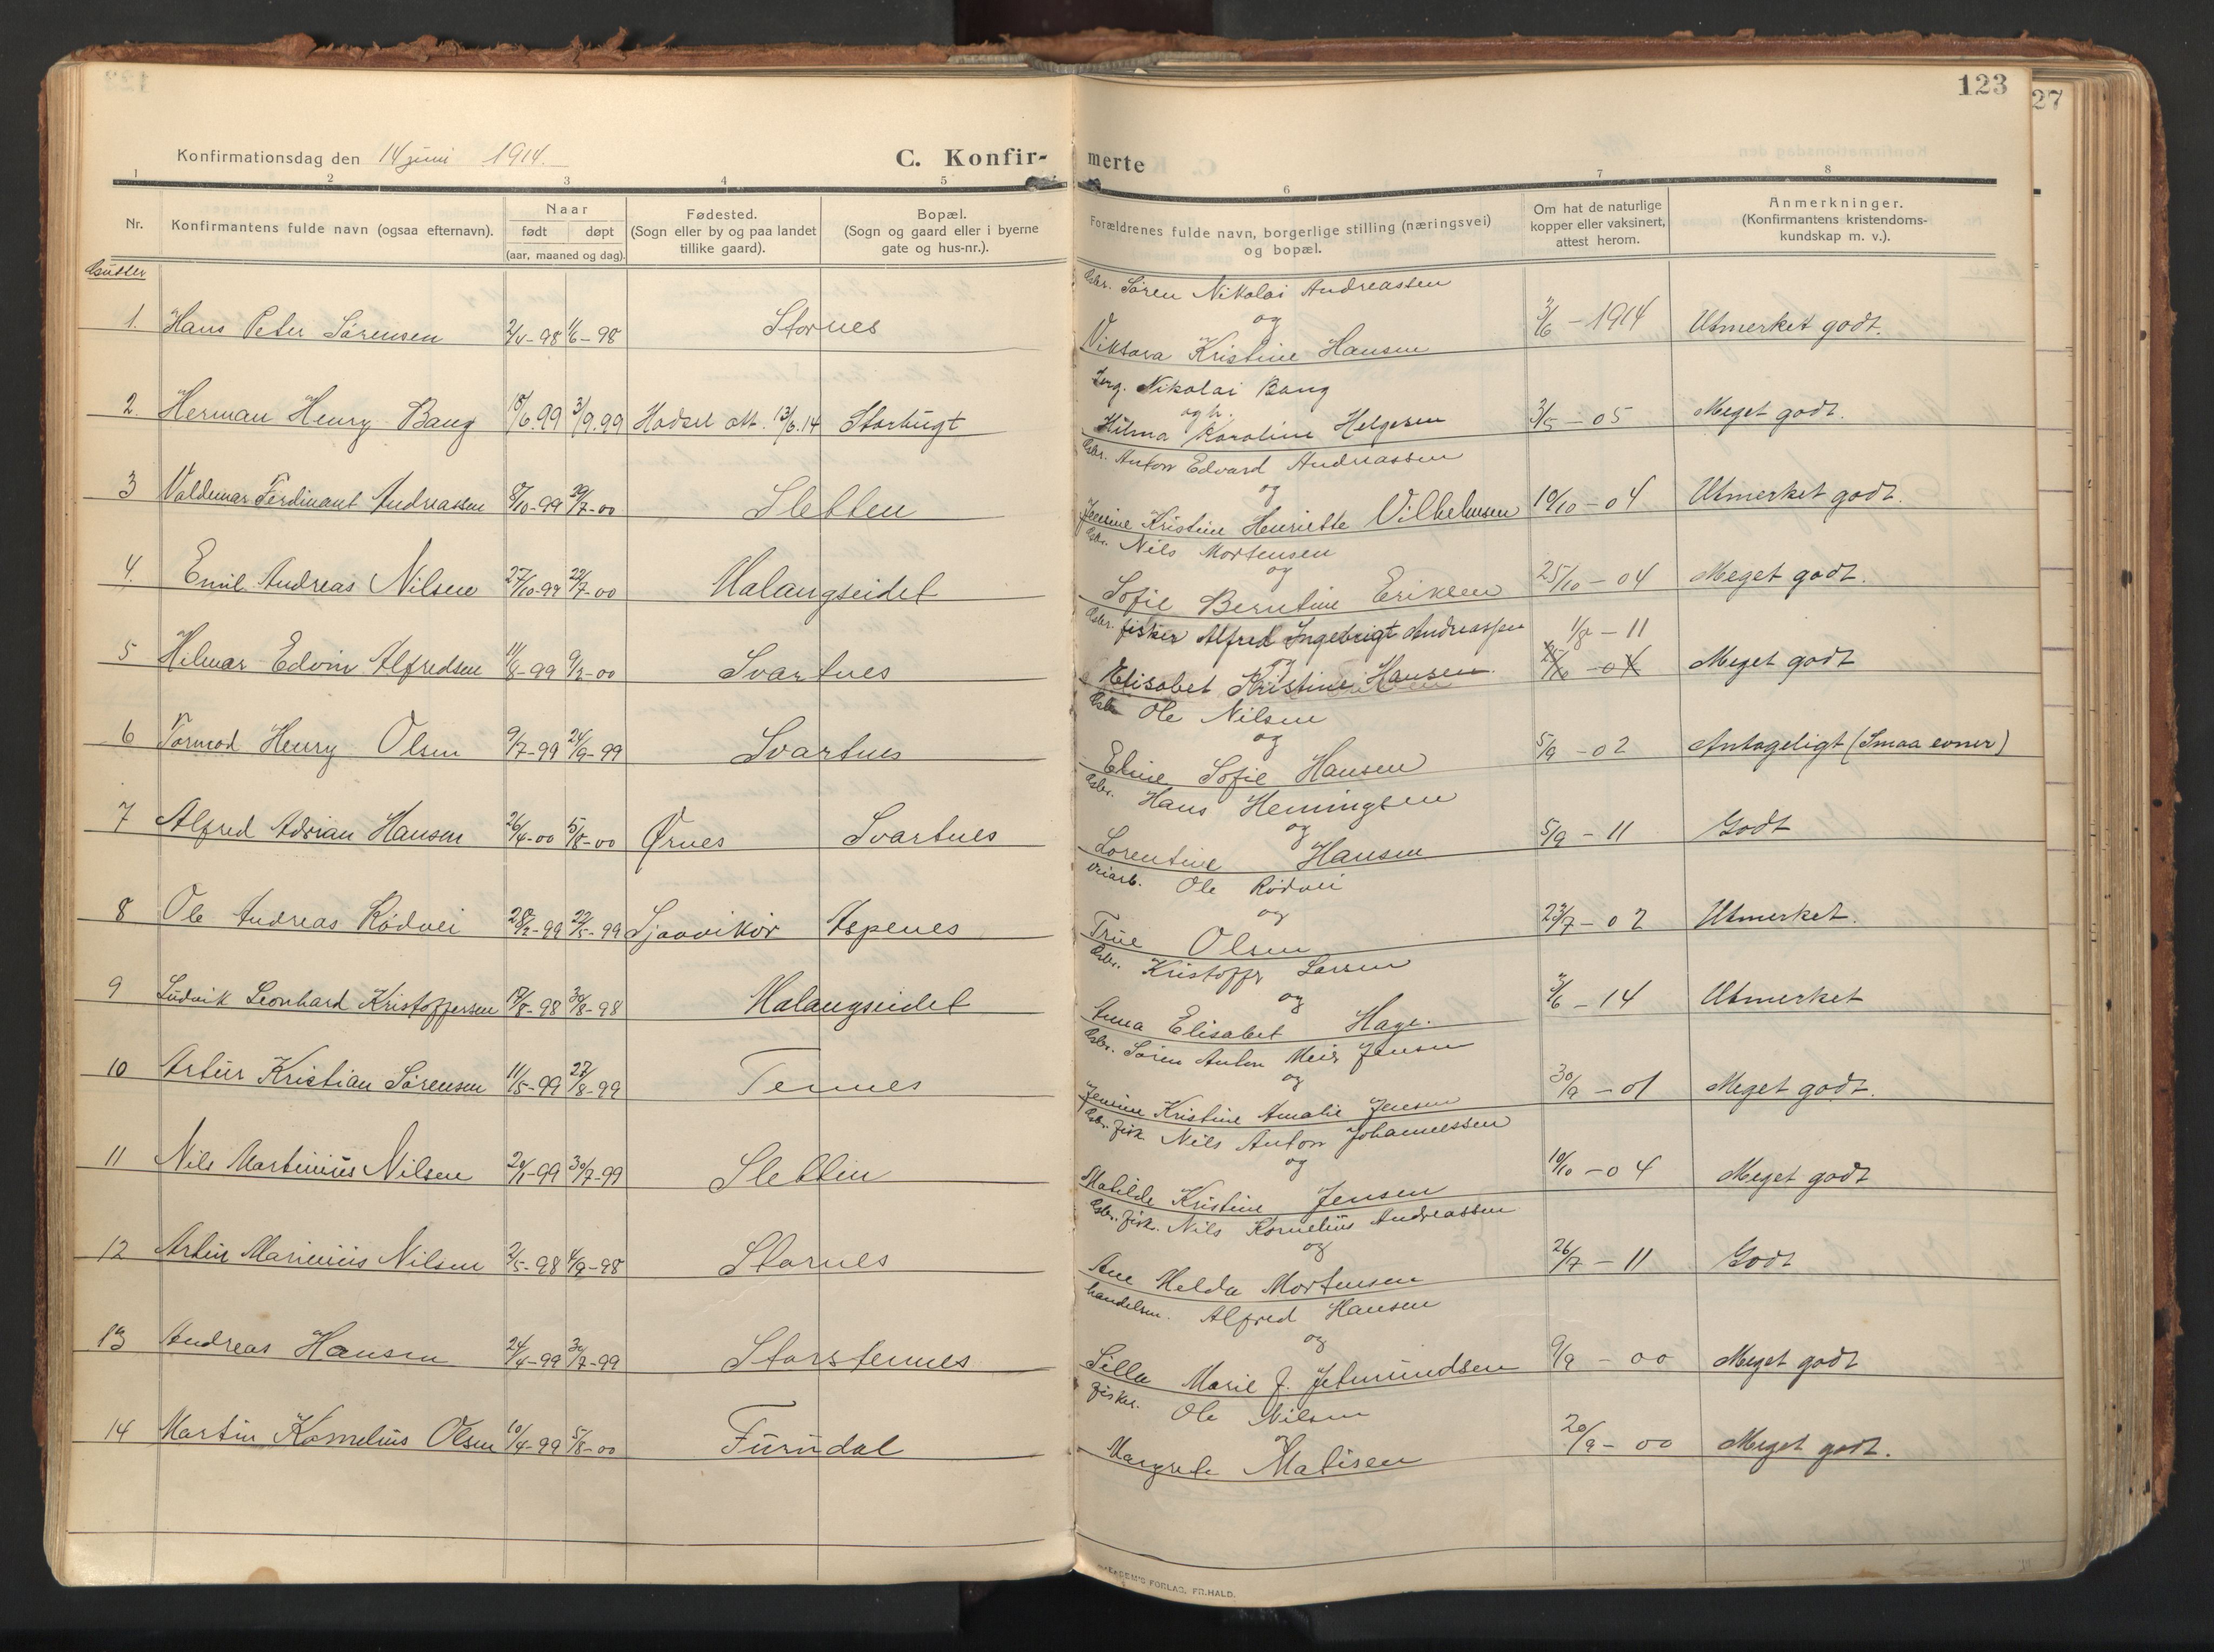 123
27
Konfirmationsdag den 14 juni 1914.
C. Konfir-merte
1 2 3 4 5 6 7 8
Nr.
Konfirmantens fulde navn (ogsaa efternavn).
Naar
født døpt
(aar, maaned og dag).
Fødested.
(Sogn eller by og paa landet
tillike gaard).
Bopæl.
(Sogn og gaard eller i byerne
gate og hus-nr.).
Forældrenes fulde navn, borgerlige stilling (næringsvei)
og bopæl.
Om hat de naturlige
kopper eller vaksinert,
attest herom.
Anmerkninger.
(Konfirmantens kristendoms-
kundskap m. v.).
Gutter
Gbr. Søren Nikolai Andreassen
og
1. Hans Peter Sørensen 2/4-98 1/6-98 Stornes 3/6-1914 Utmerket godt.
Viktora Kristine Hansen
Nikolai Bang
og h.
2. Herman Henry Bang 18/6.99 3/9.99 Hadsel att. 13/6.14 Storbugt 3/5-05 Meget godt.
Hilma Karoline Helgesen
Gbr. Anton Edvard Andreassen
og
3 Valdemar Ferdinant Andreassen 8/10-99 29/7-00 Sletten 10/10-04 Utmerket godt.
Jensine Kristine Henriette Vilhelmsen
Gbr. Nils Mortensen
og
4. Emil Andreas Nilsen 27/10-99 22/7-00 Malangseidet 25/10-04 Meget godt.
Sofie Berntine Eriksen
Gbr. fisker Alfred Ingebrigt Andreassen 1/8-11
og
5 Hilmar Edvin Alfredsen 11/8-99 9/2-00 Svartnes Meget godt
Elisabet Kristine Hansen
Gbr Ole Nilsen
og
6 Tormod Henry Olsen 9/7-99 24/9-99 Svartnes 5/9-02 Antageligt (Smaa evner)
Eline Sofie Hansen
Gbr. Hans Hemingsen
og
7 Alfred Adrian Hansen 26/4-00 5/8-00 Ørnes Svartnes 5/9-11 Godt
Lorentine Hansen
veiarb. Ole Rödvei
og
8 Ole Andreas Rödvei 28/2-99 22/5-99 Sjaavikør Aspenes 23/7-02 Utmerket.
Trine Olsen
Gbr. Kristoffr Larsen
og
9 Ludvik Leonhard Kristoffersen 17/8-98 30/8-98 Malangseidet 3/6-14 Utmerket
Anna Elisabet Hage.
Gbr. Søren Anton Meir Jensen
og
10 Artur Kristian Sørensen 11/5-99 27/8-99 Tennes 30/9-01 Meget godt.
Jensine Kristine Amalie Jensen
Gbr. fisk. Nils Anton Johannessen
og
11 Nils Martinius Nilsen 20/1-99 30/7-99 Sletten 10/10-04 Meget godt
Matilde Kristine Jensen
Gbr. fisk. Nils Kornelius Andreassen
og
12 Artur Marinius Nilsen 2/5-98 4/9-98 Stornes 26/7-11 Godt
Ane Helda Mortensen
handelsm. Alfred Hansen
og
13 Andreas Hansen 24/4-99 30/7-99 Storstennes 9/9-00 Meget godt
Silla Marie J. Jetmundsen
fisker. Ole Nilsen
og
14 Martin Kornelius Olsen 10/4-99 5/8-00 Furudal 20/9-00 Meget godt.
Margrete Matisen
FORLAG, FR.HALD.